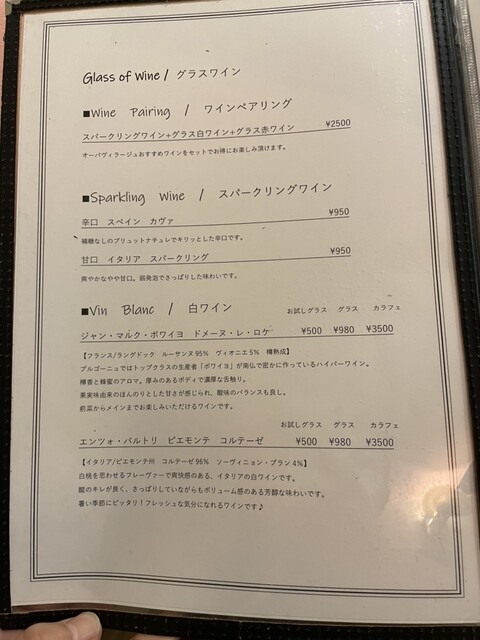 Glass of Wine / グラスワイン
■Wine Pairing / ワインペアリング
スパークリングワイン+グラス白ワイン+グラス赤ワイン ¥2500
オーバヴィラージュおすすめワインをセットでお得にお楽しみ頂けます。
■Sparkling Wine / スパークリングワイン
辛口 スペイン カヴァ ¥950
補糖なしのブリュットナチュレでキリッとした辛口です。
甘口 イタリア スパークリング ¥950
爽やかなやや甘口。弱発泡でさっぱりした味わいです。
■Vin Blanc / 白ワイン お試しグラス グラス カラフェ
ジャン・マルク・ボワイヨ ドメーヌ・レ・ロケ ¥500 ¥980 ¥3500
【フランス/ラングドック ルーサンヌ 95% ヴィオニエ 5% 樽熟成】
ブルゴーニュではトップクラスの生産者「ボワイヨ」が南仏で密かに作っているハイパーワイン。
樽香と蜂蜜のアロマ。厚みのあるボディで濃厚な舌触り。
果実味由来のほんのりとした甘さが感じられ、酸味のバランスも良し。
前菜からメインまでお楽しみいただけるワインです。
お試しグラス グラス カラフェ
エンツォ・バルトリ ピエモンテ コルテーゼ ¥500 ¥980 ¥3500
【イタリア/ピエモンテ州 コルテーゼ 96% ソーヴィニョン・ブラン 4%】
白桃を思わせるフレーヴァーで爽快感のある、イタリアの白ワインです。
酸のキレが良く、さっぱりしていながらもボリューム感のある芳醇な味わいです。
暑い季節にピッタリ！フレッシュな気分になれるワインです♪